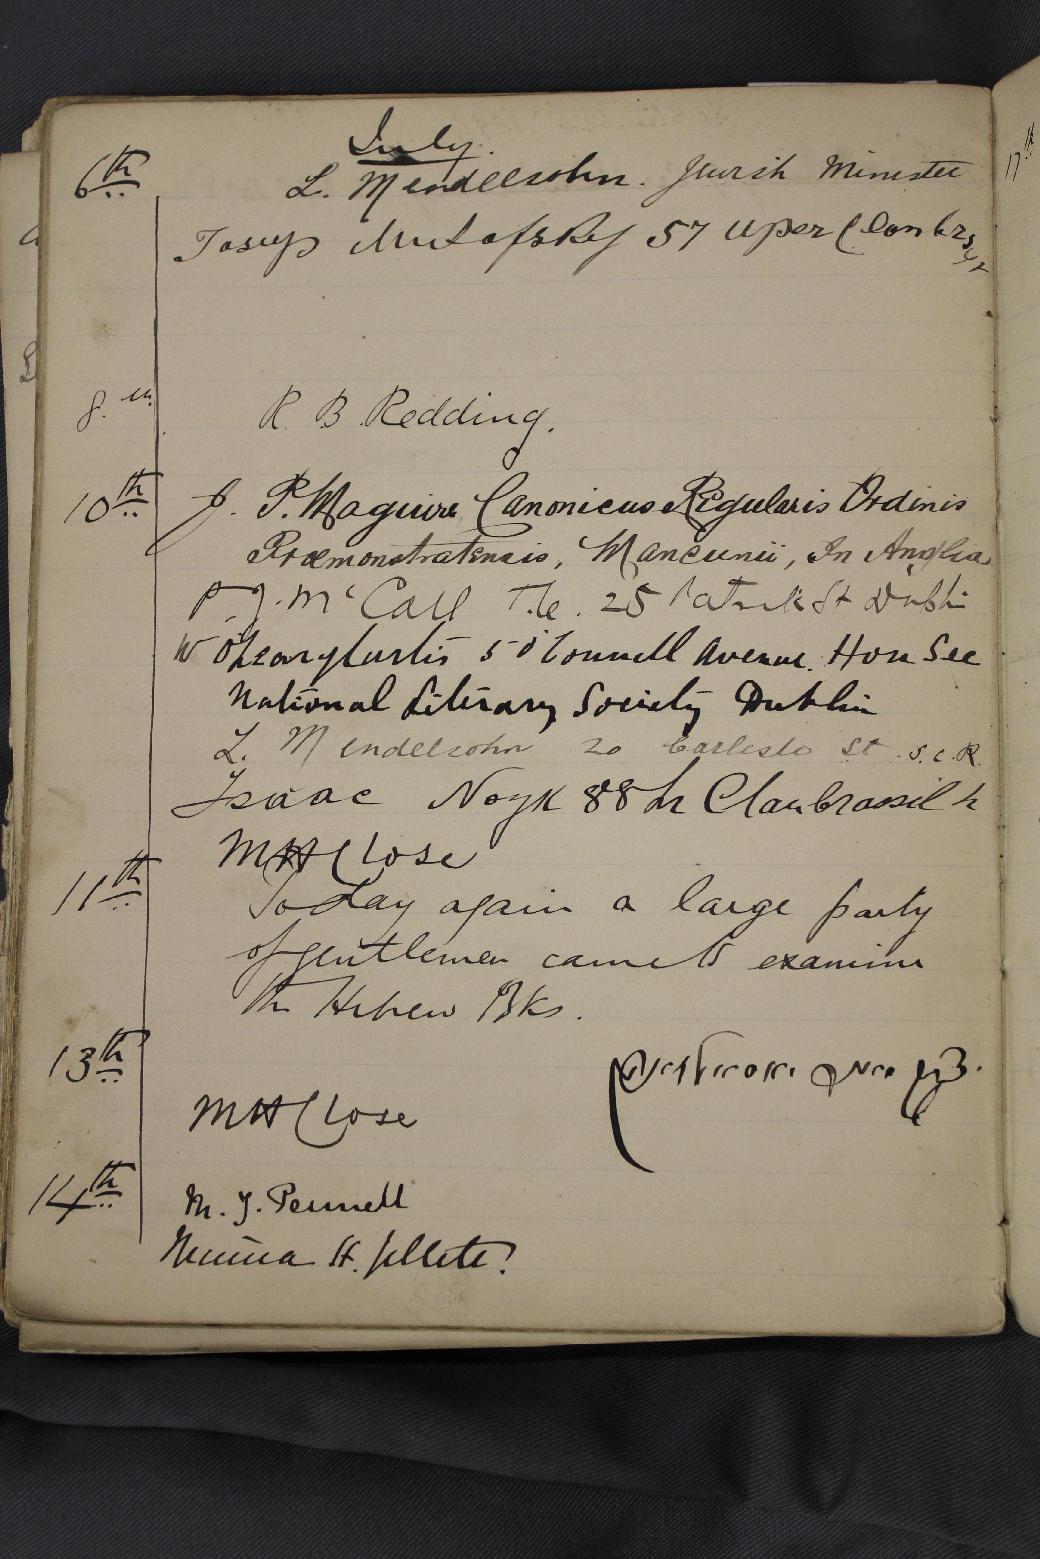 July.
6th L. Mendelsohn. Jewish Minister
57 Uper Clanbrsylr
8th R. B. Redding.
10th J. P. Maguire Canonicus Regularis Ordinis
Præmonstratensis, Mancunii, In Anglia
P. J. McCall T.C. 25 Patrick St Dublin
W O'Leary Curtis 5 O'Connell Avenue. Hon Sec
National Literary Society Dublin
L. Mendelsohn 20 Carlisle St S.C.R.
Isaac Noyk 88 Lr Clanbrassil
M H Close
11th Today again a large party
of gentlemen came to examine
the Hebrew Bks.
13th
M H Close
14th M. J. Pennell
H. Jellett.
17th